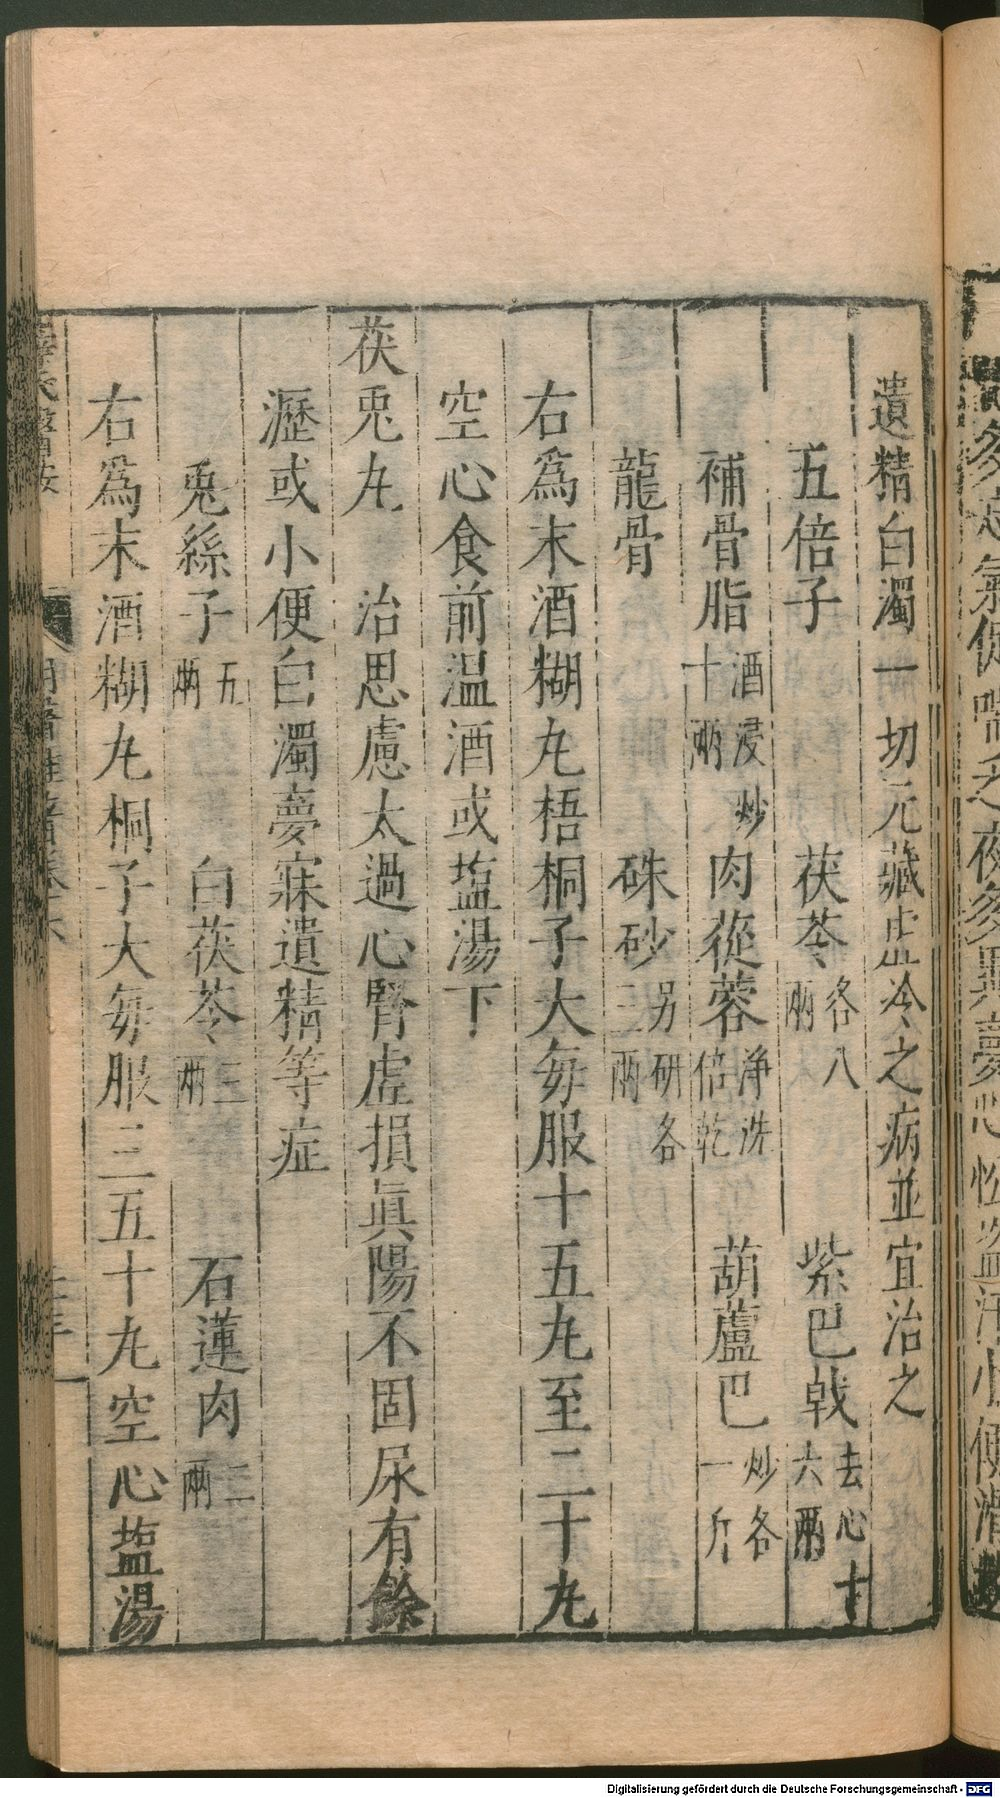 遺精白濁一切元藏虚冷之病並宜治之
五倍子　茯苓各八兩　紫巴戟去心十六兩
補骨脂酒浸炒十兩　肉蓯蓉淨洗焙乾　葫蘆巴炒各一斤
龍骨　硃砂另研各三兩
右爲末酒糊丸梧桐子大每服十五丸至二十丸
空心食前温酒或塩湯下
茯兎丸　治思慮太過心腎虚損眞陽不固尿有餘
瀝或小便白濁夢寐遺精等症
兎絲子五兩　白茯苓三兩　石蓮肉二兩
右爲末酒糊丸桐子大每服三五十丸空心塩湯
Digitalisierung gefördert durch die Deutsche Forschungsgemeinschaft - DFG